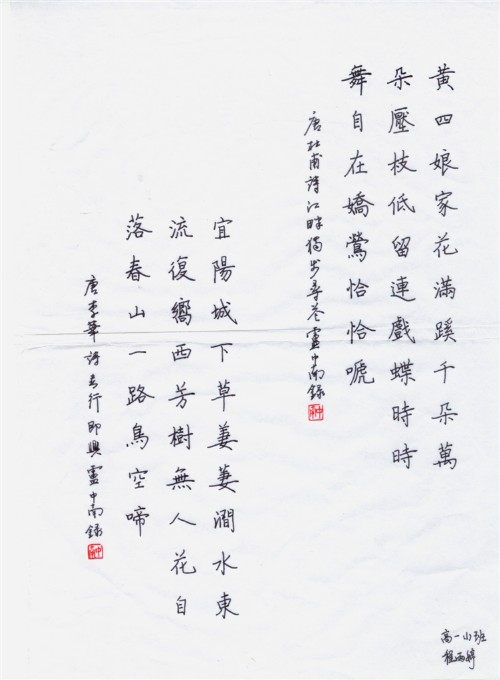 黃四娘家花滿蹊千朵萬
朵壓枝低留連戲蝶時時
舞自在嬌鶯恰恰嗁
唐杜甫詩江畔獨步尋花盧中南錄
宜陽城下草萋萋澗水東
流復嚮西芳樹無人花自
落春山一路鳥空啼
唐李華詩春行即興盧中南錄
高一班
程雨婷